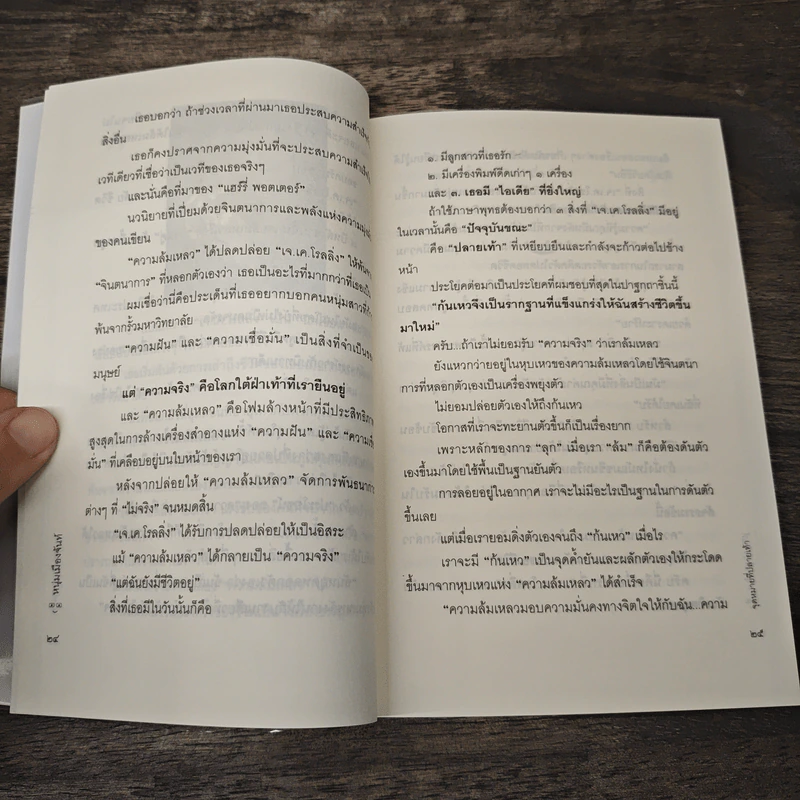 เธอบอกว่า ถ้าช่วงเวลาที่ผ่านมาเธอประสบความสำเร็จ
สิ่งอื่น
เธอก็คงปราศจากความมุ่งมั่นที่จะประสบความสำเร็จ
เวทีเดียวที่เชื่อว่าเป็นเวทีของเธอจริงๆ
และนั่นคือที่มาของ “แฮร์รี่ พอตเตอร์”
นวนิยายที่เปี่ยมด้วยจินตนาการและพลังแห่งความมุ่งมั่น
ของคนเขียน
“ความล้มเหลว” ได้ปลดปล่อย “เจ.เค.โรลลิ่ง” ให้พ้นจาก
“จินตนาการ” ที่หลอกตัวเองว่า เธอเป็นอะไรที่มากกว่าที่เธอเป็น
ผมเชื่อว่านี่คือประเด็นที่เธออยากบอกคนหนุ่มสาวที่
พ้นจากรั้วมหาวิทยาลัย
“ความฝัน” และ “ความเชื่อมั่น” เป็นสิ่งที่จำเป็น
มนุษย์
แต่ “ความจริง” คือโลกใต้ฝ่าเท้าที่เรายืนอยู่
และ “ความล้มเหลว” คือโฟมล้างหน้าที่มีประสิทธิภาพ
สูงสุดในการล้างเครื่องสำอางแห่ง “ความฝัน” และ “ความเชื่อ
มั่น” ที่เคลือบอยู่บนใบหน้าของเรา
หลังจากปล่อยให้ “ความล้มเหลว” จัดการพันธนาการ
ต่างๆ ที่ “ไม่จริง” จนหมดสิ้น
“เจ.เค.โรลลิ่ง” ได้รับการปลดปล่อยให้เป็นอิสระ
แม้ “ความล้มเหลว” ได้กลายเป็น “ความจริง”
“แต่ฉันยังมีชีวิตอยู่”
สิ่งที่เธอมีในวันนั้นก็คือ
หนุ่มเมืองจันท์
๒๔
๑. มีลูกสาวที่เธอรัก
๒. มีเครื่องพิมพ์ดีดเก่าๆ ๑ เครื่อง
และ ๓. เธอมี “ไอเดีย” ที่ยิ่งใหญ่
ถ้าใช้ภาษาพุทธต้องบอกว่า ๓ สิ่งที่ “เจ.เค.โรลลิ่ง” มีอยู่
ในเวลานั้นคือ “ปัจจุบันขณะ”
คือ “ปลายเท้า” ที่เหยียบยืนและกำลังจะก้าวต่อไปข้าง
หน้า
ประโยคต่อมาเป็นประโยคที่ผมชอบที่สุดในปาฐกถาชิ้นนี้
“ก้นเหวจึงเป็นรากฐานที่แข็งแกร่งให้ฉันสร้างชีวิตขึ้น
มาใหม่”
ครับ...ถ้าเราไม่ยอมรับ “ความจริง” ว่าเราล้มเหลว
ยังแหวกว่ายอยู่ในหุบเหวของความล้มเหลวโดยใช้จินตนา
การที่หลอกตัวเองเป็นเครื่องพยุงตัว
ไม่ยอมปล่อยตัวเองให้ถึงก้นเหว
โอกาสที่เราจะทะยานตัวขึ้นก็เป็นเรื่องยาก
เพราะหลักของการ “ลุก” เมื่อเรา “ล้ม” ก็คือต้องดันตัว
เองขึ้นมาโดยใช้พื้นเป็นฐานยันตัว
การลอยอยู่ในอากาศ เราจะไม่มีอะไรเป็นฐานในการดันตัว
ขึ้นเลย
แต่เมื่อเรายอมดิ่งตัวเองจนถึง “ก้นเหว” เมื่อไร
เราจะมี “ก้นเหว” เป็นจุดค้ำยันและผลักตัวเองให้กระโดด
ขึ้นมาจากหุบเหวแห่ง “ความล้มเหลว” ได้สำเร็จ
“ความล้มเหลวมอบความมั่นคงทางจิตใจให้กับฉัน...ความ
จุดหมายที่ปลายเท้า
๒๕